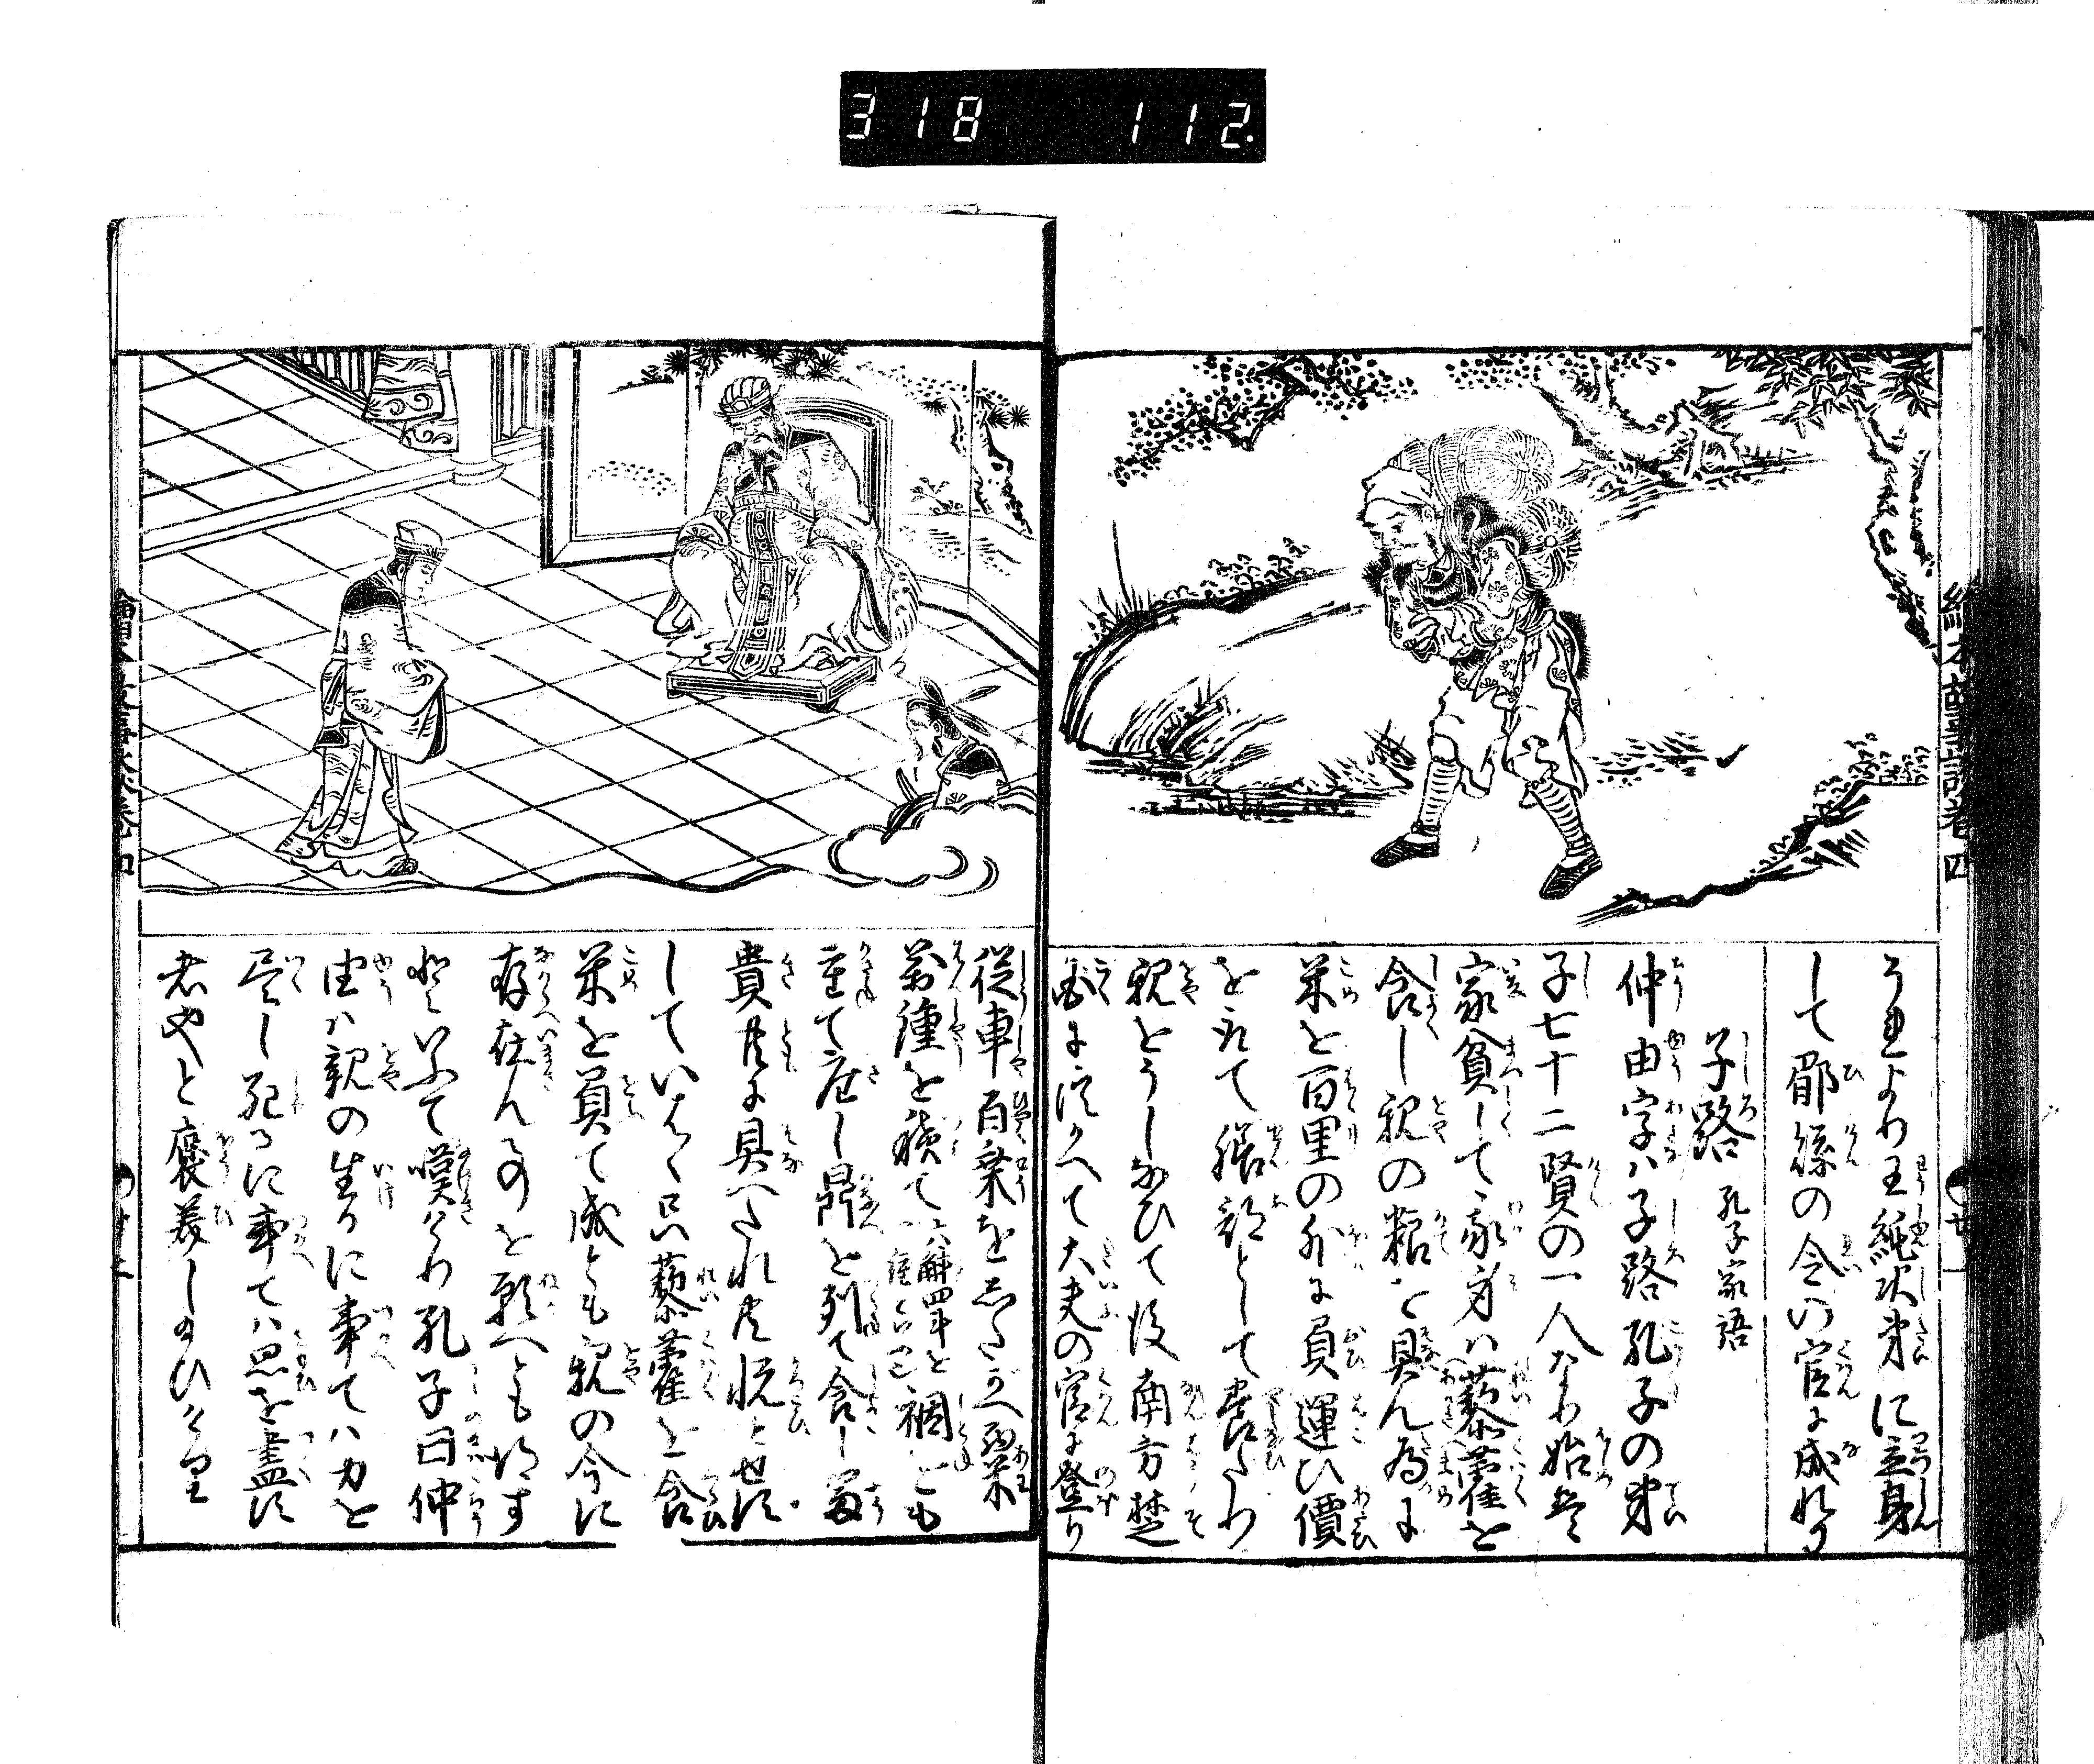 318 112.
絵本故事談巻四
うまより王純次第に立身
して郿縣の令の官に成れり
子路 孔子家語
仲由字ハ子路孔子の弟
子七十二賢の一人なり始其
家貧して家身ハ藜藿を
食し親の粮を具ん為に
米を百里の外に負運ひ價
を取て膳部として養たり
親をうしなひて後南方楚
國に従へて大夫の官に登り
従車百乗をしたがへ
萬鍾を積て六斛四斗を
重て座し鼎を列て食し
貴に具へたれ共悦とせす
していはく只藜藿を食
米を負て成とも親の今に
存在んを願へとも得す
といふて嘆けり孔子曰仲
由ハ親の生るに事てハ力を
尽し死るに事てハ思を盡す
者やと褒美し給ひける